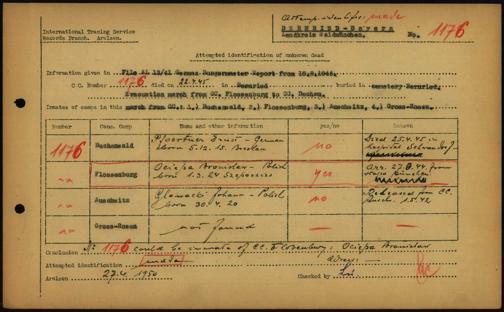 International Tracing Service
Records Branch. Arolsen.
Attemp. identific: made
BERNRIED-Bayern
Landkreis Waldmünchen.
No. 1176
Attempted identification of unknown dead
Information given in File 13/61 German Burgermaster Report from 10.8.1946.
C.C. Number 1176 died on 22.4.45 in Bernried buried in cemetery Bernried.
Evacuation march from CC. Flossenburg to CC. Dachau.
Inmates of camps in this march from CC: 1,) Buchenwald, 2,) Flossenburg, 3,) Auschwitz, 4,) Gross-Rosen.
Number Conc. Camp Name and other information yes/no Reason
1176 Buchenwald Ernst - German born 5.12.15. Breslau no Died 25.4.45 in hospital
Flossenburg Ociepa Bronislaw - Polish born 1.3.24 yes Arr. 27.8.44 from
Auschwitz Glowacki Johann - Polish born 30.4.20 no Released from CC 1.5.42
Gross-Rosen not found
Conclusion No 1176 could be inmate of CC. Flossenburg: Ociepa Bronislaw
Attempted identification made
27.4.1950
Checked by